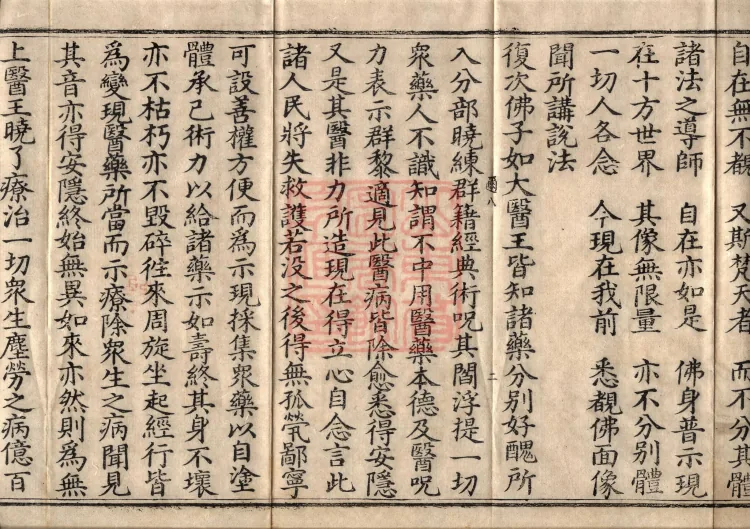 自在無不覩　又斯梵天者　而不分其體
諸法之導師　自在亦如是　佛身普示現
在十方世界　其像無限量　亦不分別體
一切人各念　今現在我前　悉覩佛面像
聞所講說法
復次佛子如大醫王皆知諸藥分別好醜所
入分部曉練群籍經典術呪其閻浮提一切
衆藥人不識知謂不中用醫藥本德及醫呪
力表示群黎適見此醫病皆除愈悉得安隱
又是其醫非力所造現在得立心自念言此
諸人民將失救護若没之後得無孤煢鄙寧
可設善權方便而爲示現採集衆藥以自塗
體承己術力以給諸藥示如壽終其身不壞
亦不枯朽亦不毀碎徃來周旋坐起經行皆
爲變現醫藥所當而示療除衆生之病聞見
其音亦得安隱終始無異如來亦然則爲無
上醫王曉了療治一切衆生塵勞之病億百